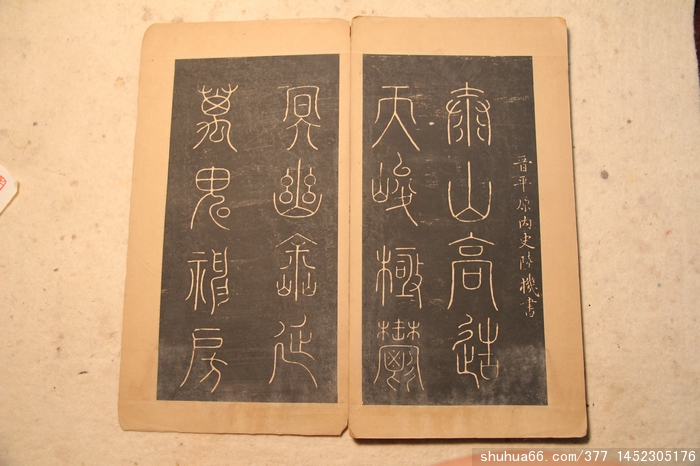 晉平原內史陸機書
泰山高造
天峻極鬱
冥幽崟延
萬鬼神房
shuhua66.com/377 1452305176